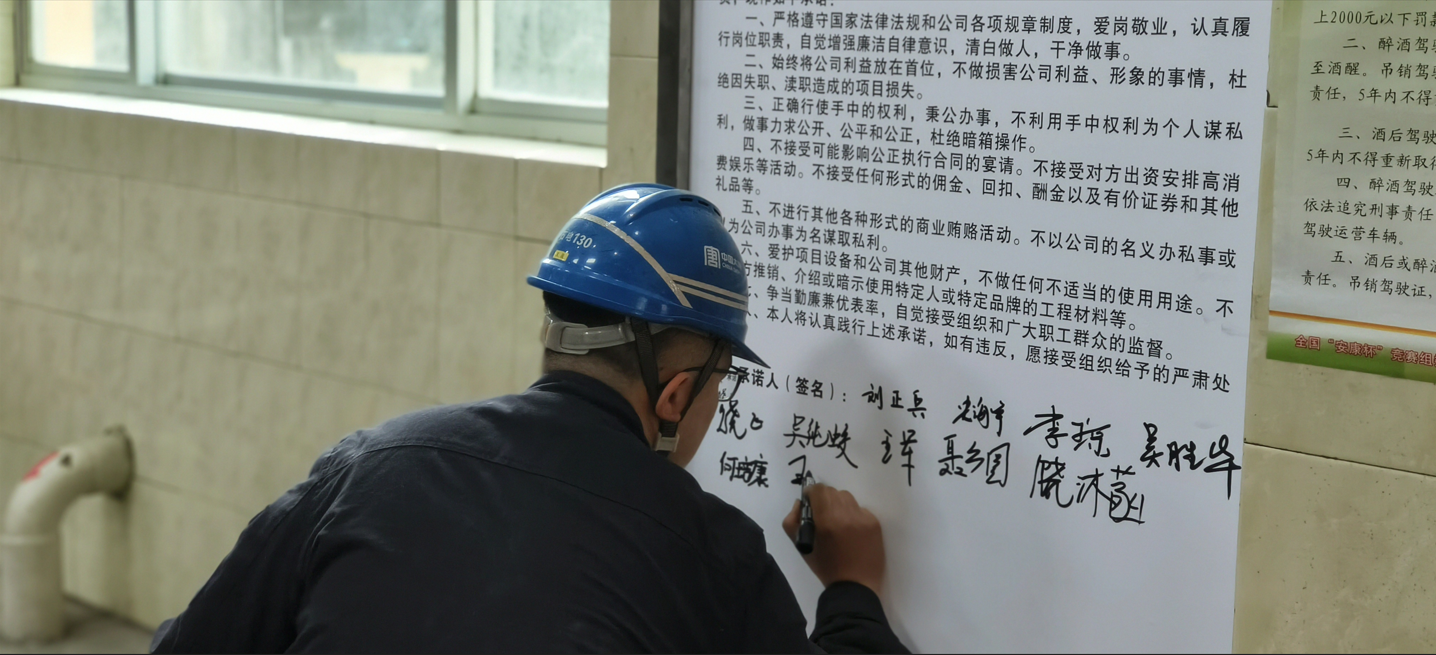 一、严格遵守国家法律法规和公司各项规章制度，爱岗敬业，认真履
行岗位职责，自觉增强廉洁自律意识，清白做人，干净做事。
二、始终将公司利益放在首位，不做损害公司利益、形象的事情，杜
绝因失职、渎职造成的项目损失。
三、正确行使手中的权利，秉公办事，不利用手中权利为个人谋私
利，做事力求公开、公平和公正，杜绝暗箱操作。
四、不接受可能影响公正执行合同的宴请。不接受对方出资安排高消
费娱乐等活动。不接受任何形式的佣金、回扣、酬金以及有价证券和其他
礼品等。
五、不进行其他各种形式的商业贿赂活动。不以公司的名义办私事或
为公司办事为名谋取私利。
六、爱护项目设备和公司其他财产，不做任何不适当的使用用途。不
推销、介绍或暗示使用特定人或特定品牌的工程材料等。
、争当勤廉兼优表率，自觉接受组织和广大职工群众的监督。
、本人将认真践行上述承诺，如有违反，愿接受组织给予的严肃处
承诺人（签名）：刘正兵 李琼 吴胜华
何瑞康
130
中国
上2000元以下罚
二、醉酒驾
至酒醒。吊销驾
责任，5年内不得
三、酒后驾驶
5年内不得重新取得
四、醉酒驾驶
依法追究刑事责任
驾驶运营车辆。
五、酒后或醉酒
责任。吊销驾驶证，
全国“安康杯”竞赛组